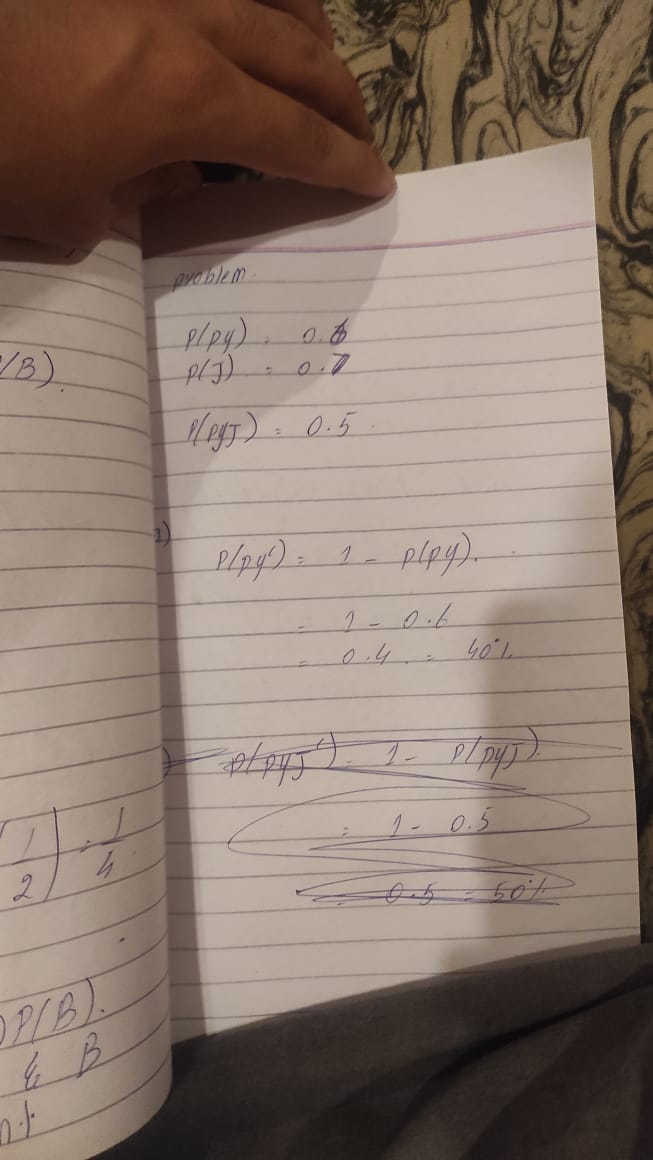 /B).
1/2) = 1/4.
)P(B).
& B
problem.
P(py) = 0.6
P(J) = 0.7
P(pyJ) = 0.5.
P(py') = 1 - P(py).
= 1 - 0.6
= 0.4. = 40%
P(pyJ') = 1 - P(pyJ).
= 1 - 0.5
= 0.5 = 50%